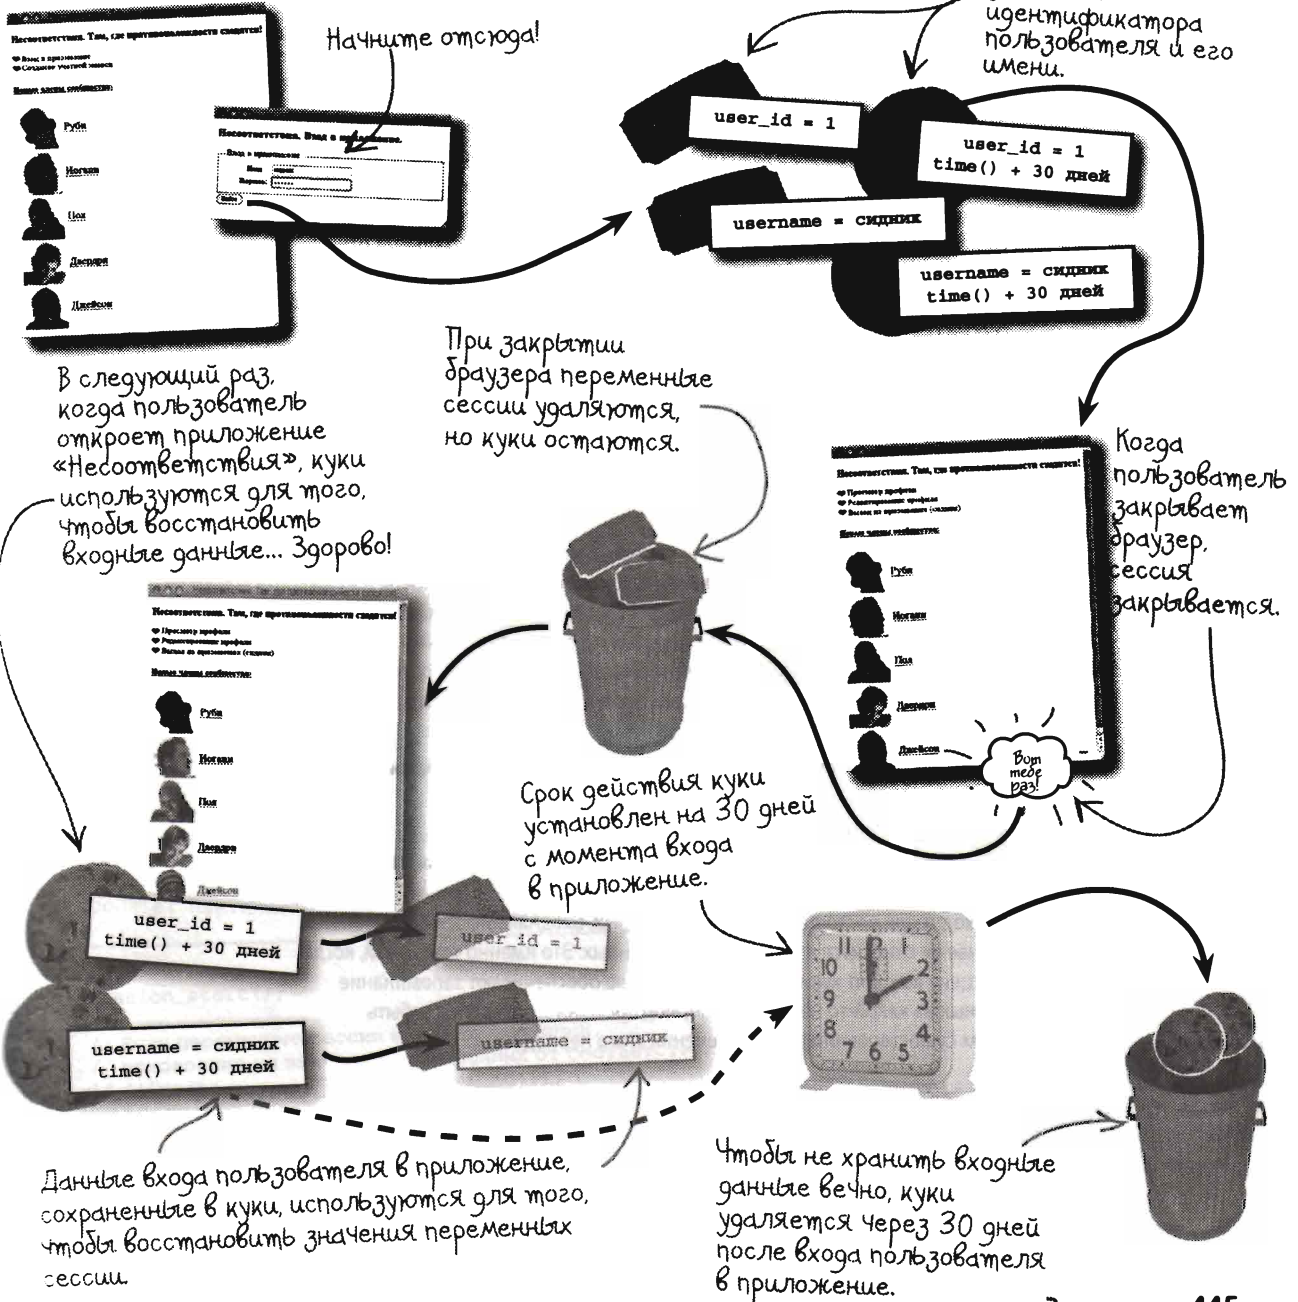 Несоответствия. Там, где противоположности сходятся!
Вход в приложение
Создание учетной записи
Новые члены сообщества:
Руби
Ногами
Пол
Дьердри
Джейсон
Начните отсюда!
Несоответствия. Вход в приложение.
Вход в приложение
Имя
Пароль:
идентификатора
пользователя и его
имени.
user_id = 1
user_id = 1
time() + 30 дней
username = сидник
username = сидник
time() + 30 дней
При закрытии
браузера переменные
сессии удаляются,
но куки остаются.
В следующий раз,
когда пользователь
откроет приложение
«Несоответствия», куки
используются для того,
чтобы восстановить
входные данные... Здорово!
Когда
пользователь
закрывает
браузер,
сессия
закрывается.
Несоответствия. Там, где противоположности сходятся!
Просмотр профиля
Редактирование профиля
Выход из приложения (сидник)
Новые члены сообщества:
Руби
Ногами
Пол
Дьердри
Джейсон
Вот
тебе
раз!
Несоответствия. Там, где противоположности сходятся!
Просмотр профиля
Редактирование профиля
Выход из приложения (сидник)
Новые члены сообщества:
Руби
Ногами
Пол
Дьердри
Джейсон
Срок действия куки
установлен на 30 дней
с момента входа
в приложение.
user_id = 1
time() + 30 дней
user_id = 1
username = сидник
time() + 30 дней
username = сидник
11 12 1
10 2
9 3
8 4
7 6 5
Данные входа пользователя в приложение,
сохраненные в куки, используются для того,
чтобы восстановить значения переменных
сессии.
Чтобы не хранить входные
данные вечно, куки
удаляется через 30 дней
после входа пользователя
в приложение.